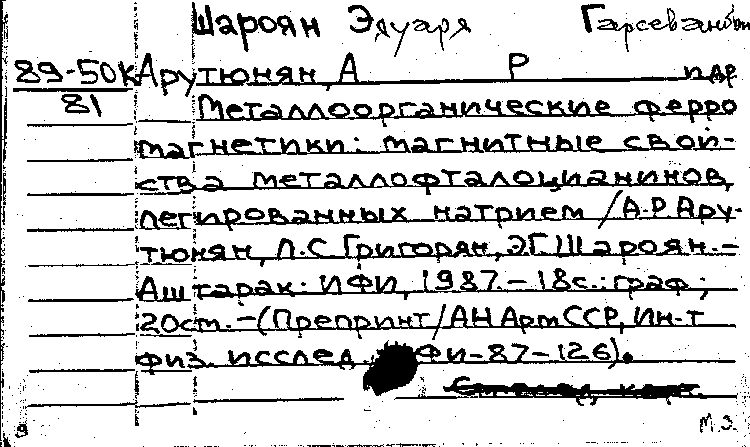 Шароян Эдуард Гарсеванович
89-50К Арутюнян, А Р идр
81 Металлоорганические ферро
магнетики: магнитные свой-
ства металлофталоцианинов,
легированных натрием / А.Р.Ару-
тюнян, Л.С.Григорян, Э.Г.Шароян.-
Аштарак: ИФИ, 1987.-18с.:граф;
20см.-(Препринт/АН АрмССР, Ин-т
физ. исслед. ФИ-87-126).
М.Э.